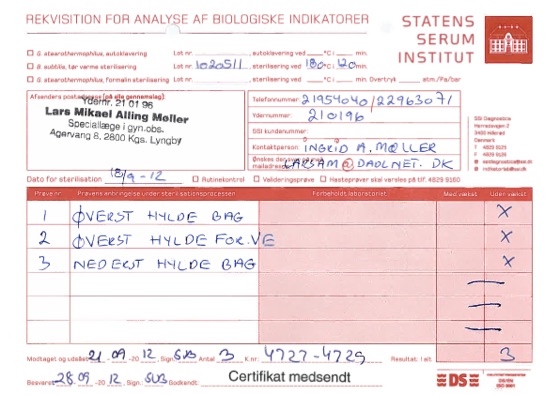 REKVISITION FOR ANALYSE AF BIOLOGISKE INDIKATORER
STATENS
SERUM
INSTITUT
G. stearothermophilus, autoklavering Lot nr. , autoklavering ved °C i min.
B. subtilis, tør varme sterilisering Lot nr. 1020511 , sterilisering ved 180 °C i 120 min.
G. stearothermophilus, formalin sterilisering Lot nr. , sterilisering ved °C i min. Overtryk atm./Pa/bar
Afsenders postadresse (på alle gennemslag)
Ydernr. 21 01 96
Lars Mikael Alling Møller
Speciallæge i gyn.obs.
Agervang 8, 2800 Kgs. Lyngby
Telefonnummer 21954040/22963071
Ydernummer 210196
SSI kundenummer:
Kontaktperson INGRID A. MØLLER
Ønskes der svar på
mailadresse LARSAM@DADLNET.DK
SSI Diagnostica
Herredsvejen 2
3400 Hillerød
Denmark
Dato for sterilisation 18/9-12 Rutinekontrol Valideringsprøve Hasteprøver skal varsles på tlf. 4829 9160
Prøve nr. Prøvens anbringelse under sterilisationsprocessen Forbeholdt laboratoriet Med vækst Uden vækst
1 ØVERST HYLDE BAG X
2 ØVERST HYLDE FOR.VE X
3 NEDERST HYLDE BAG X
Modtaget og udsået 21.09-2012, Sign. SUB Antal 3 K.nr: 4727-4729 Resultat: I alt 3
Besvaret 28.09-2012, Sign. SUB Godkendt: Certifikat medsendt
DS